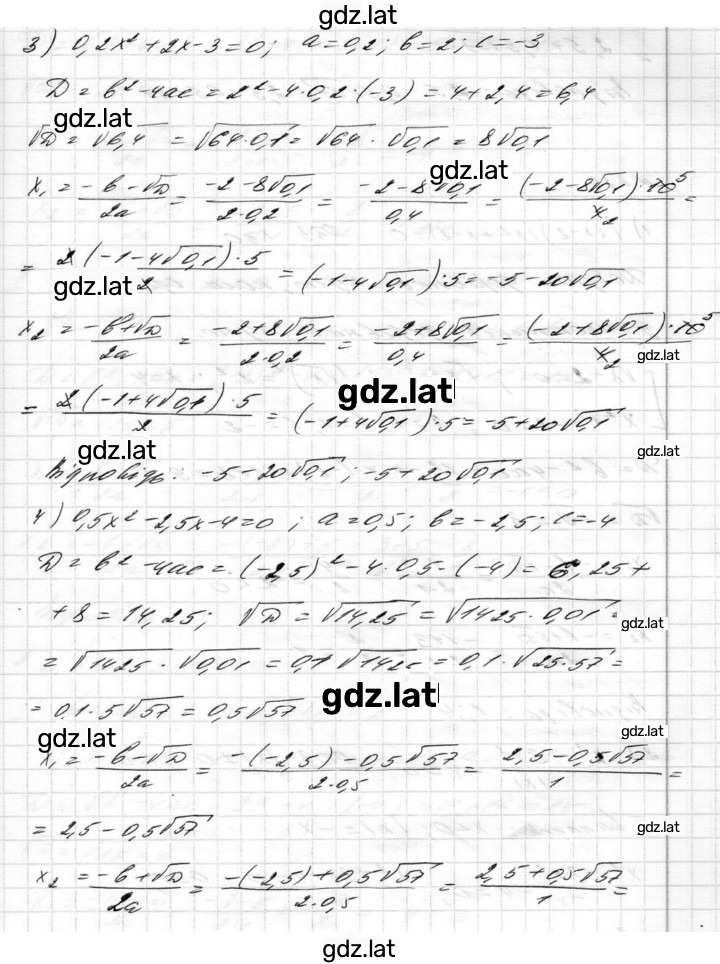 gdz.lat
3) 0,2x² + 2x - 3 = 0; a = 0,2; b = 2; c = -3
D = b² - 4ac = 2² - 4·0,2·(-3) = 4 + 2,4 = 6,4
gdz.lat
√D = √6,4 = √64·0,1 = √64 · √0,1 = 8√0,1
gdz.lat
x₁ = (-b - √D)/2a = (-2 - 8√0,1)/2·0,2 = (-2 - 8√0,1)/0,4 = ((-2 - 8√0,1)·10 5)/4 2 =
= (2(-1 - 4√0,1)·5)/2 = (-1 - 4√0,1)·5 = -5 - 20√0,1
gdz.lat
x₂ = (-b + √D)/2a = (-2 + 8√0,1)/2·0,2 = (-2 + 8√0,1)/0,4 = ((-2 + 8√0,1)·10 5)/4 2
gdz.lat
gdz.lat
= (2(-1 + 4√0,1)·5)/2 = (-1 + 4√0,1)·5 = -5 + 20√0,1
gdz.lat
Відповідь: -5 - 20√0,1; -5 + 20√0,1
4) 0,5x² - 2,5x - 4 = 0; a = 0,5; b = -2,5; c = -4
D = b² - 4ac = (-2,5)² - 4·0,5·(-4) = 6,25 +
+ 8 = 14,25; √D = √14,25 = √1425·0,01 =
gdz.lat
= √1425 · √0,01 = 0,1√1425 = 0,1·√25·57 =
gdz.lat
= 0,1·5√57 = 0,5√57
gdz.lat
gdz.lat
x₁ = (-b - √D)/2a = (-(-2,5) - 0,5√57)/2·0,5 = (2,5 - 0,5√57)/1 =
= 2,5 - 0,5√57
gdz.lat
x₂ = (-b + √D)/2a = (-(-2,5) + 0,5√57)/2·0,5 = (2,5 + 0,5√57)/1 =
gdz.lat